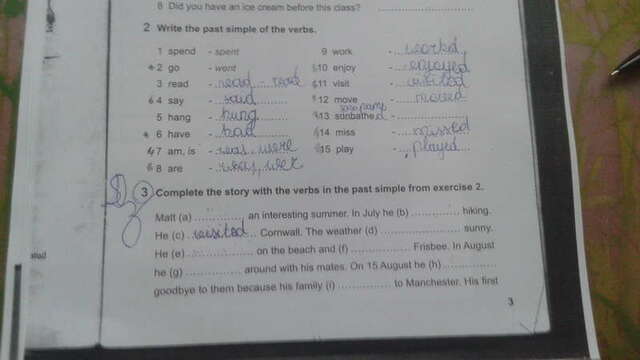 8 Did you have an ice cream before this class? ..............................
2 Write the past simple of the verbs.
1 spend - spent 9 work - worked
2 go - went 10 enjoy - enjoyed
3 read - read - read 11 visit - visited
4 say - said 12 move - moved
5 hang - hung 13 sunbathe d - ..............................
6 have - had 14 miss - missed
7 am, is - was, were 15 play - played
8 are - was, wer
3 Complete the story with the verbs in the past simple from exercise 2.
Matt (a) .................... an interesting summer. In July he (b) .................... hiking.
He (c) visited Cornwall. The weather (d) .................... sunny.
He (e) .................... on the beach and (f) .................... Frisbee. In August
he (g) .................... around with his mates. On 15 August he (h) ....................
goodbye to them because his family (i) .................... to Manchester. His first
3